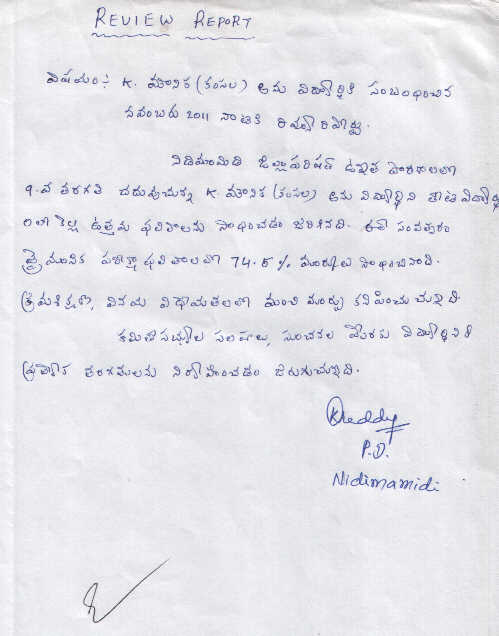 REVIEW REPORT
విషయం:- K. మౌనిక (కంసల) అను విద్యార్థికి సంబంధించిన
నవంబరు 2011 నాటికి రివ్యూ రిపోర్టు.
నిడిమామిడి జిల్లా పరిషత్ ఉన్నత పాఠశాలలో
9-వ తరగతి చదువుచున్న K. మౌనిక (కంసల) అను విద్యార్థిని తోటి విద్యార్థు
లలో కెల్ల ఉత్తమ ఫలితాలను సాధించడం జరిగినది. ఈ సంవత్సరం
త్రైమాసిక పరీక్షా ఫలితాలలో 74.5 % మార్కులు సాధించినాది.
క్రమశిక్షణ, వినయ విధేయతలలో మంచి మార్పు కనిపించు చున్నది.
కమిటి సభ్యుల సలహాలు, సూచనల మేరకు విద్యార్థినికి
ప్రత్యేక తరగతులను నిర్వహించడం జరుగుచున్నది.
KReddy
P.D.
Nidimamidi